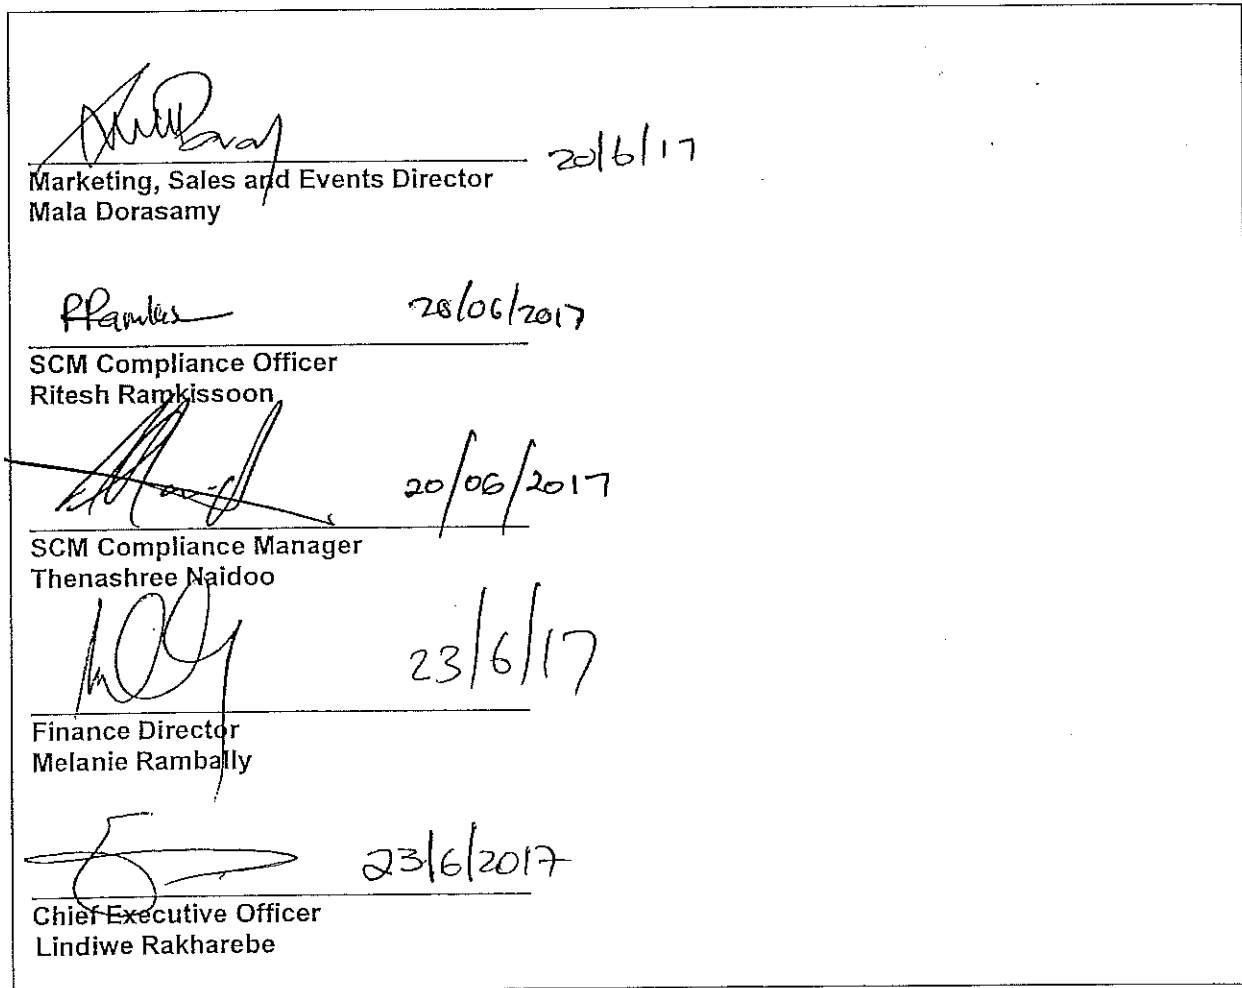 20/6/17
Marketing, Sales and Events Director
Mala Dorasamy
20/06/2017
SCM Compliance Officer
Ritesh Ramkissoon
20/06/2017
SCM Compliance Manager
Thenashree Naidoo
23/6/17
Finance Director
Melanie Rambally
23/6/2017
Chief Executive Officer
Lindiwe Rakharebe